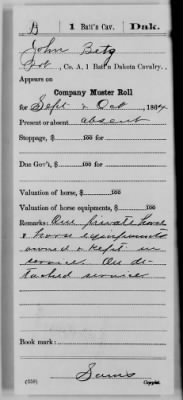 B | 1 Batt'n Cav. | Dak.
John Betz
Pvt., Co. A, 1 Batt'n Dakota Cavalry.
Appears on
Company Muster Roll
for Sept & Oct, 1864
Present or absent absent
Stoppage, $ 100 for
Due Gov't, $ 100 for
Valuation of horse, $ 100
Valuation of horse equipments, $ 100
Remarks: One private horse
& horse equipments
owned & kept in
service. On de-
tached service
Book mark:
(358)
Copyist.